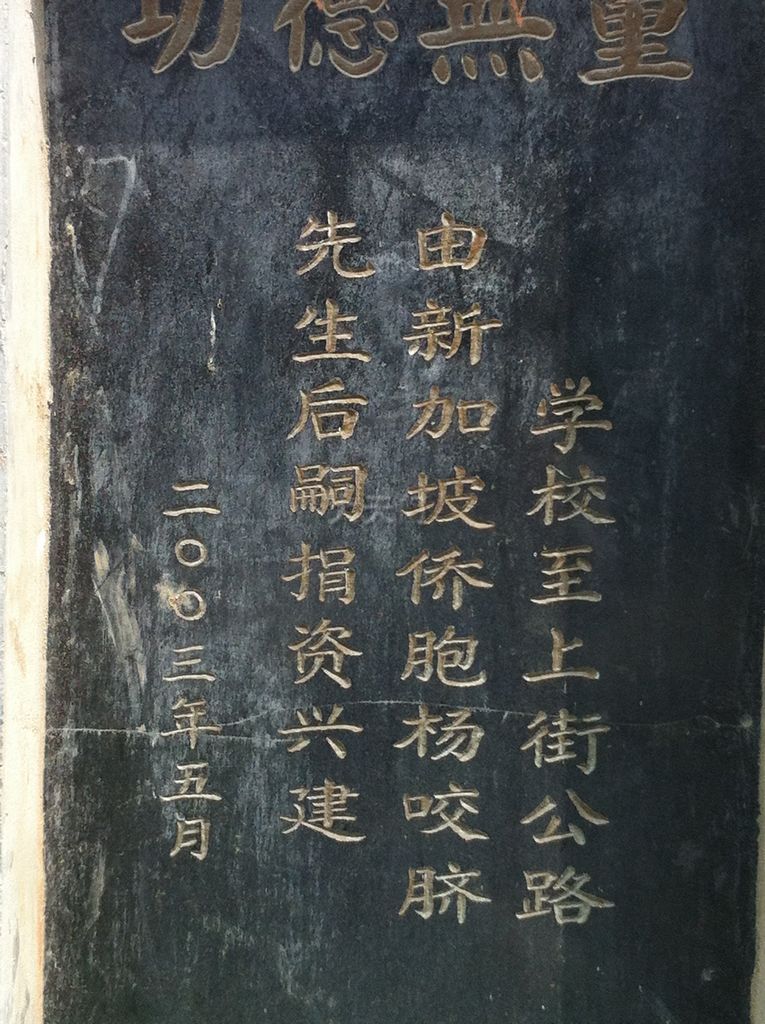 功德無量
学校至上街公路
由新加坡侨胞杨咬脐
先生后嗣捐资兴建
二〇〇三年五月